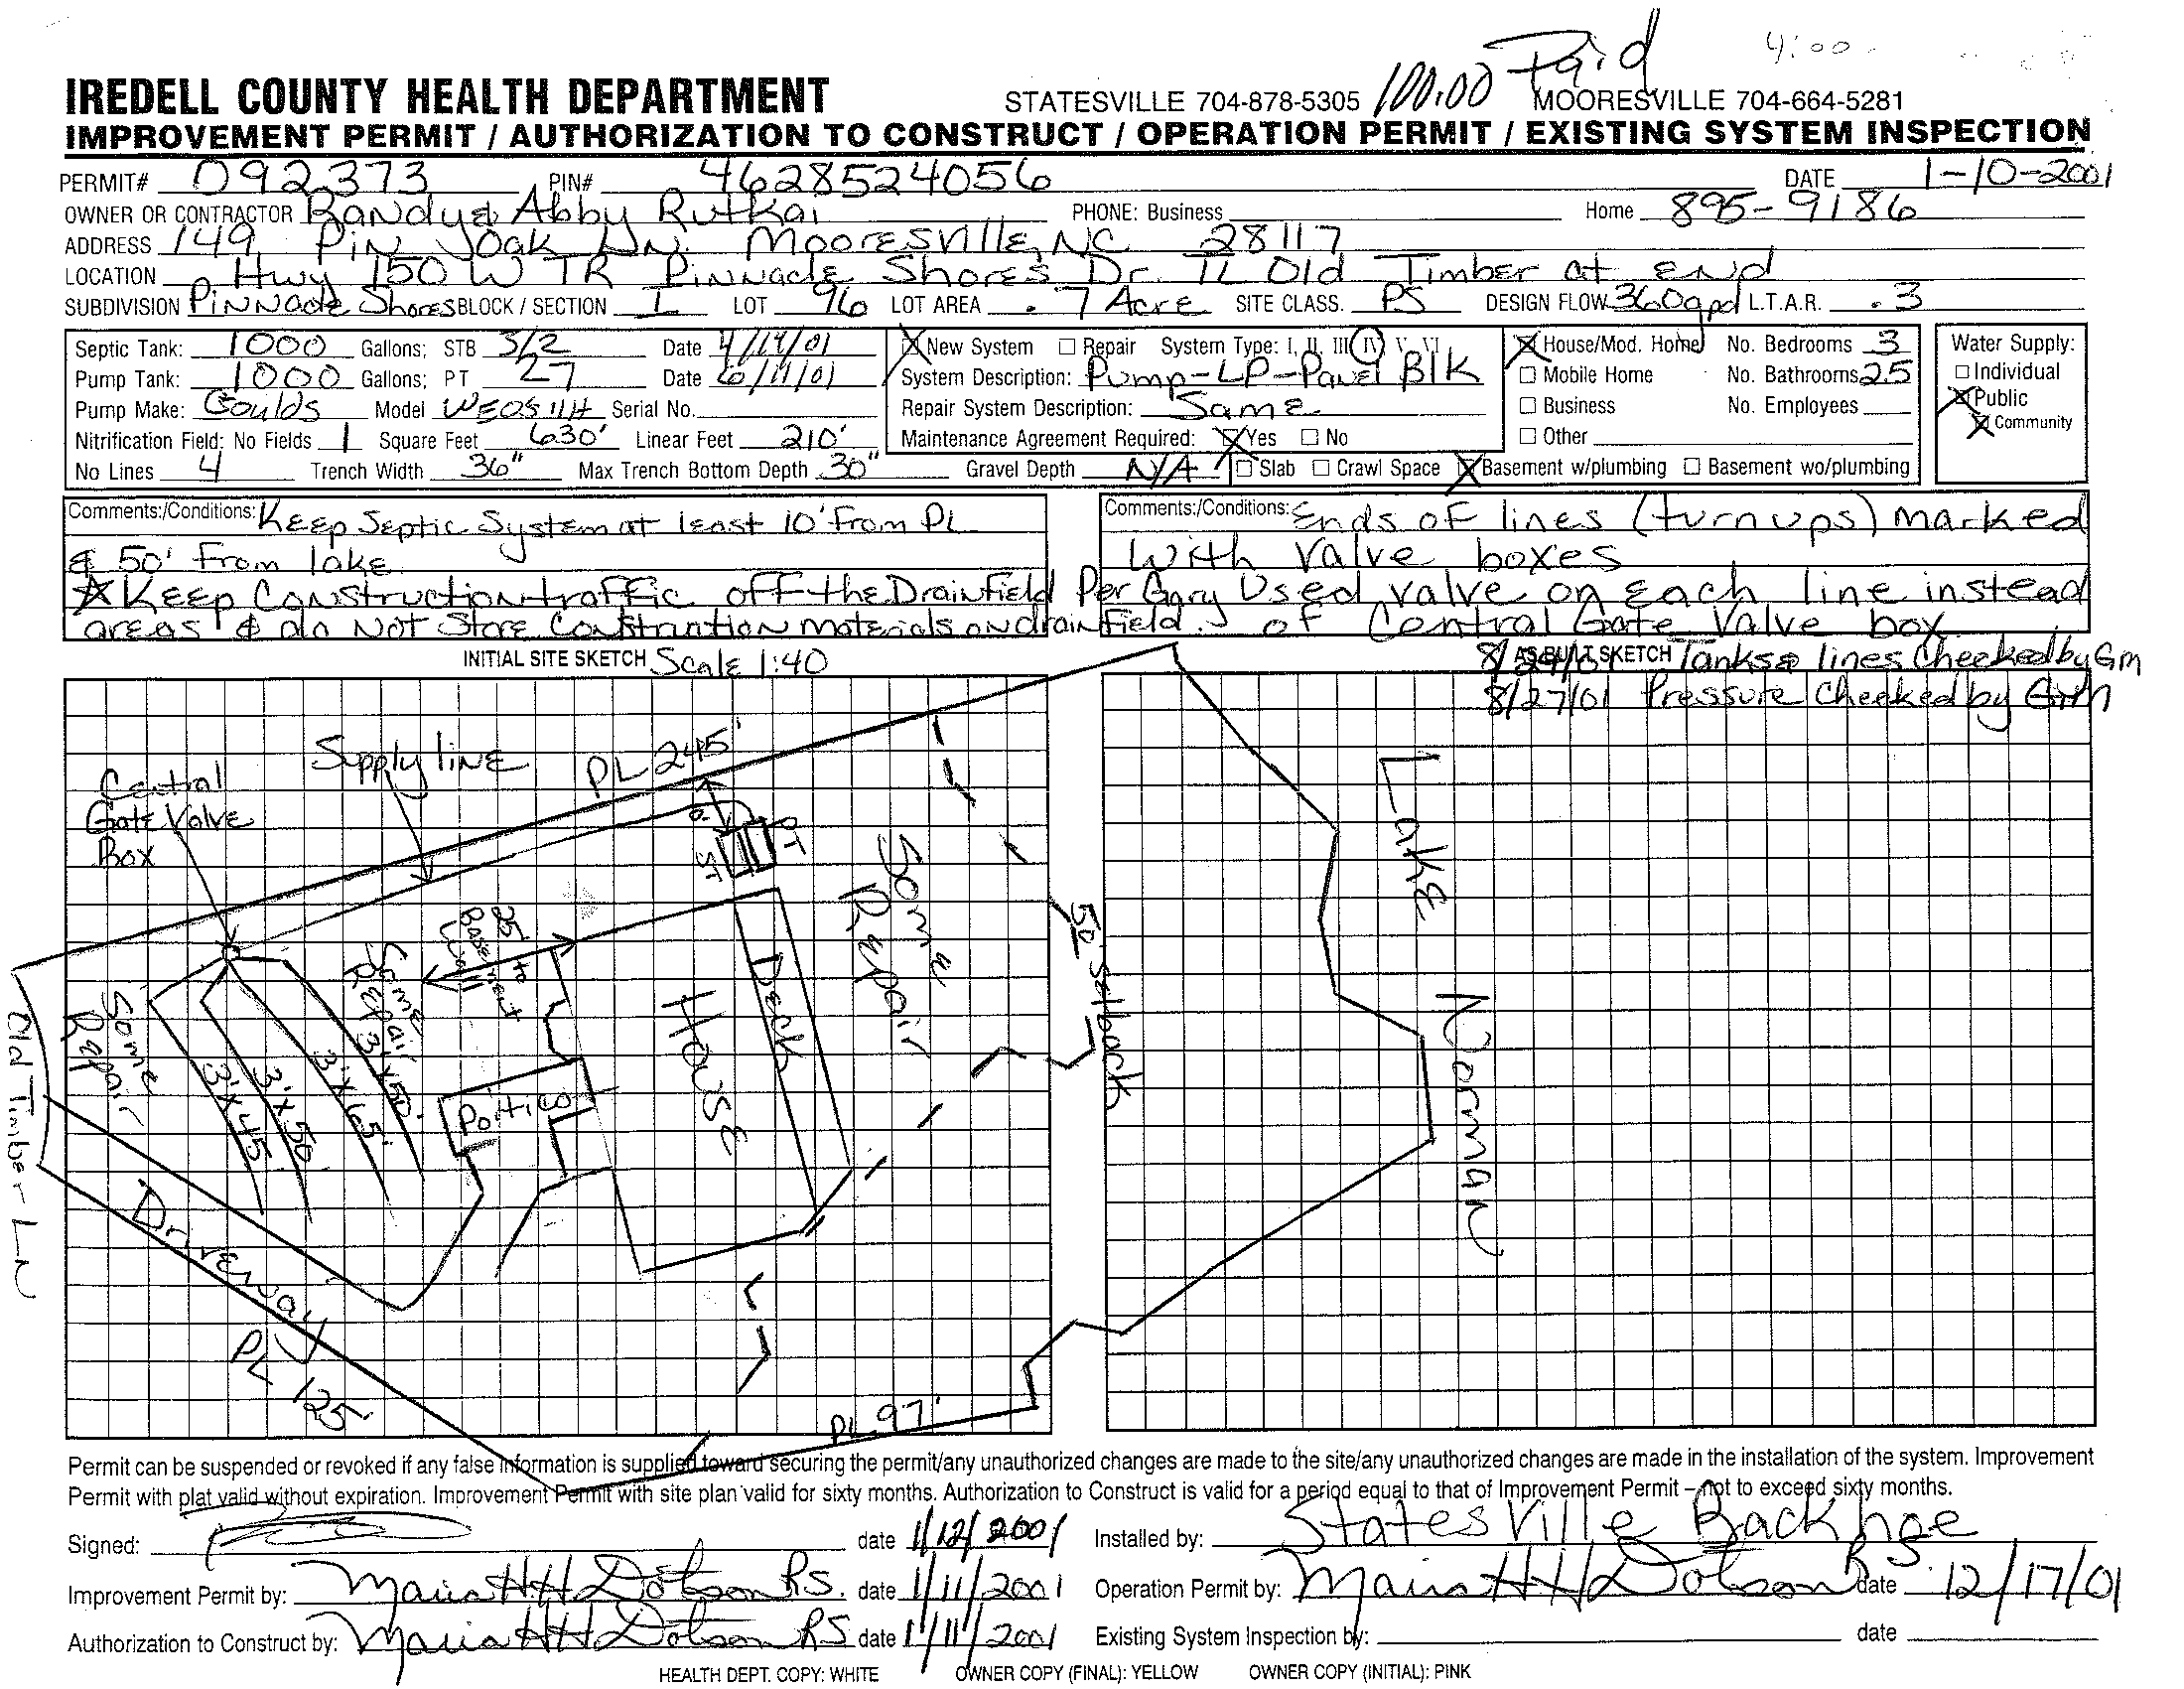 100.00 Paid 4:00
IREDELL COUNTY HEALTH DEPARTMENT STATESVILLE 704-878-5305 MOORESVILLE 704-664-5281
IMPROVEMENT PERMIT / AUTHORIZATION TO CONSTRUCT / OPERATION PERMIT / EXISTING SYSTEM INSPECTION
PERMIT# 092373 PIN# 4628524056 DATE 1-10-2001
OWNER OR CONTRACTOR Randy & Abby Rutkai PHONE: Business Home 895-9186
ADDRESS 149 Pin Oak Ln. Mooresville, NC 28117
LOCATION Hwy 150 W TR Pinnacle Shores Dr. TL Old Timber at end
SUBDIVISION Pinnacle Shores BLOCK / SECTION I LOT 96 LOT AREA .7 Acre SITE CLASS. PS DESIGN FLOW 360gpd L.T.A.R. .3
Septic Tank: 1000 Gallons; STB 312 Date 4/14/01
Pump Tank: 1000 Gallons; PT 27 Date 6/11/01
Pump Make: Goulds Model WE0511H Serial No.
Nitrification Field: No Fields 1 Square Feet 630' Linear Feet 210'
No Lines 4 Trench Width 36" Max Trench Bottom Depth 30" Gravel Depth N/A
New System Repair System Type: I, II, III IV V, VI
System Description: Pump-LP-Panel Blk
Repair System Description: Same
Maintenance Agreement Required: Yes No
Slab Crawl Space Basement w/plumbing Basement wo/plumbing
House/Mod. Home No. Bedrooms 3
Mobile Home No. Bathrooms 2.5
Business No. Employees
Other
Water Supply:
Individual
Public
Community
Comments:/Conditions: Keep Septic System at least 10' from PL
& 50' from lake
Keep Construction traffic off the Drainfield
areas & do not store construction materials on drainfield.
Comments:/Conditions: Ends of lines (turnups) marked
with valve boxes
Per Gary Used valve on each line instead
of Central Gate Valve box
INITIAL SITE SKETCH Scale 1:40
AS BUILT SKETCH
8/24/01 Tanks & lines Checked by Gm
8/27/01 Pressure Checked by GM
Supply line
PL 245'
Central
Gate Valve
Box
ST
PT
Some
Repair
25' to
Basement
Wall
Some
Repair
Deck
House
Patio
Some
Repair
3'x45'
3'x50'
3'x65'
3'x50'
50' Setback
Lake
Norman
Old Timber Ln
Driveway
PL 125'
PL 97'
Permit can be suspended or revoked if any false information is supplied toward securing the permit/any unauthorized changes are made to the site/any unauthorized changes are made in the installation of the system. Improvement
Permit with plat valid without expiration. Improvement Permit with site plan valid for sixty months. Authorization to Construct is valid for a period equal to that of Improvement Permit – not to exceed sixty months.
Signed: date 1/12/2001 Installed by: Statesville Backhoe
Improvement Permit by: Maria HH Dotson RS. date 1/11/2001 Operation Permit by: Maria HH Dotson RS date 12/17/01
Authorization to Construct by: Maria HH Dotson RS date 1/11/2001 Existing System Inspection by: date
HEALTH DEPT. COPY: WHITE OWNER COPY (FINAL): YELLOW OWNER COPY (INITIAL): PINK